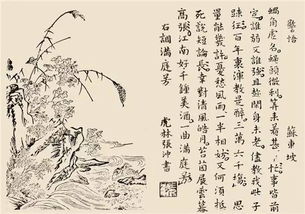 警悟
蘇東坡
蝸角虛名蠅頭微利算來著甚忙事皆前
定誰弱又誰強且趁閒身未老儘教我些子
疎狂百年裏渾教是醉三萬六千塲思
量能幾許憂愁風雨一半相妨又何須抵
死說短論長幸對清風皓月苔茵展雲幕
高張江南好千鍾美酒一曲滿庭芳
右調滿庭芳
虎林張書